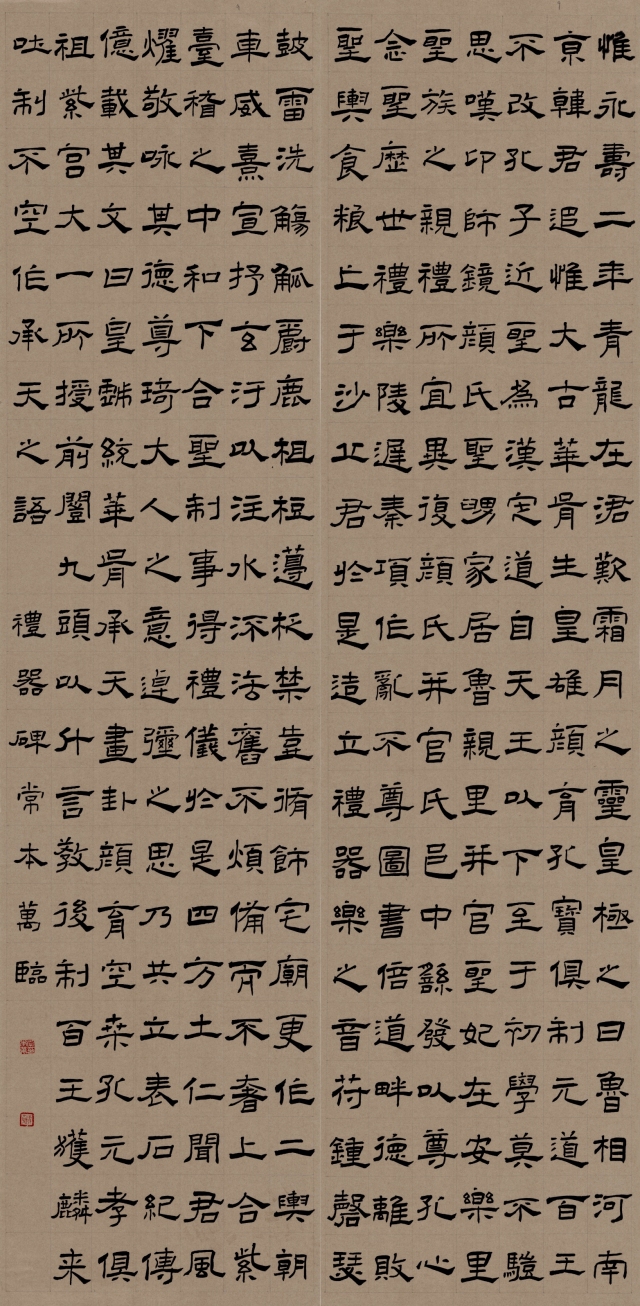 惟永壽二年青龍在涒歎霜月之靈皇極之日魯相河南
京韓君追惟大古華胥生皇雄顏育孔寶俱制元道百王
不改孔子近聖為漢定道自天王以下至于初學莫不驥
思嘆卬師鏡顏氏聖舅家居魯親里并官聖妃在安樂里
聖族之親禮所宜異復顏氏并官氏邑中繇發以尊孔心
念聖歷世禮樂陵遲秦項作亂不尊圖書倍道畔德離敗
聖輿食粮亡于沙丘君於是造立禮器樂之音苻鍾磬瑟
鼓雷洗觴觚爵鹿柤梪籩柉禁壼脩飾宅廟更作二輿朝
車威熹宣抒玄汙以注水流法舊不煩備而不奢上合紫
臺稽之中和下合聖制事得禮儀於是四方土仁聞君風
燿敬咏其德尊琦大人之意逴彌之思乃共立表石紀傳
億載其文曰皇戲統華胥承天畫卦顏育空桑孔元孝俱
祖紫宮大一所授前闓九頭以什言教後制百王獲麟来
吐制不空作承天之語 禮器碑常本萬臨